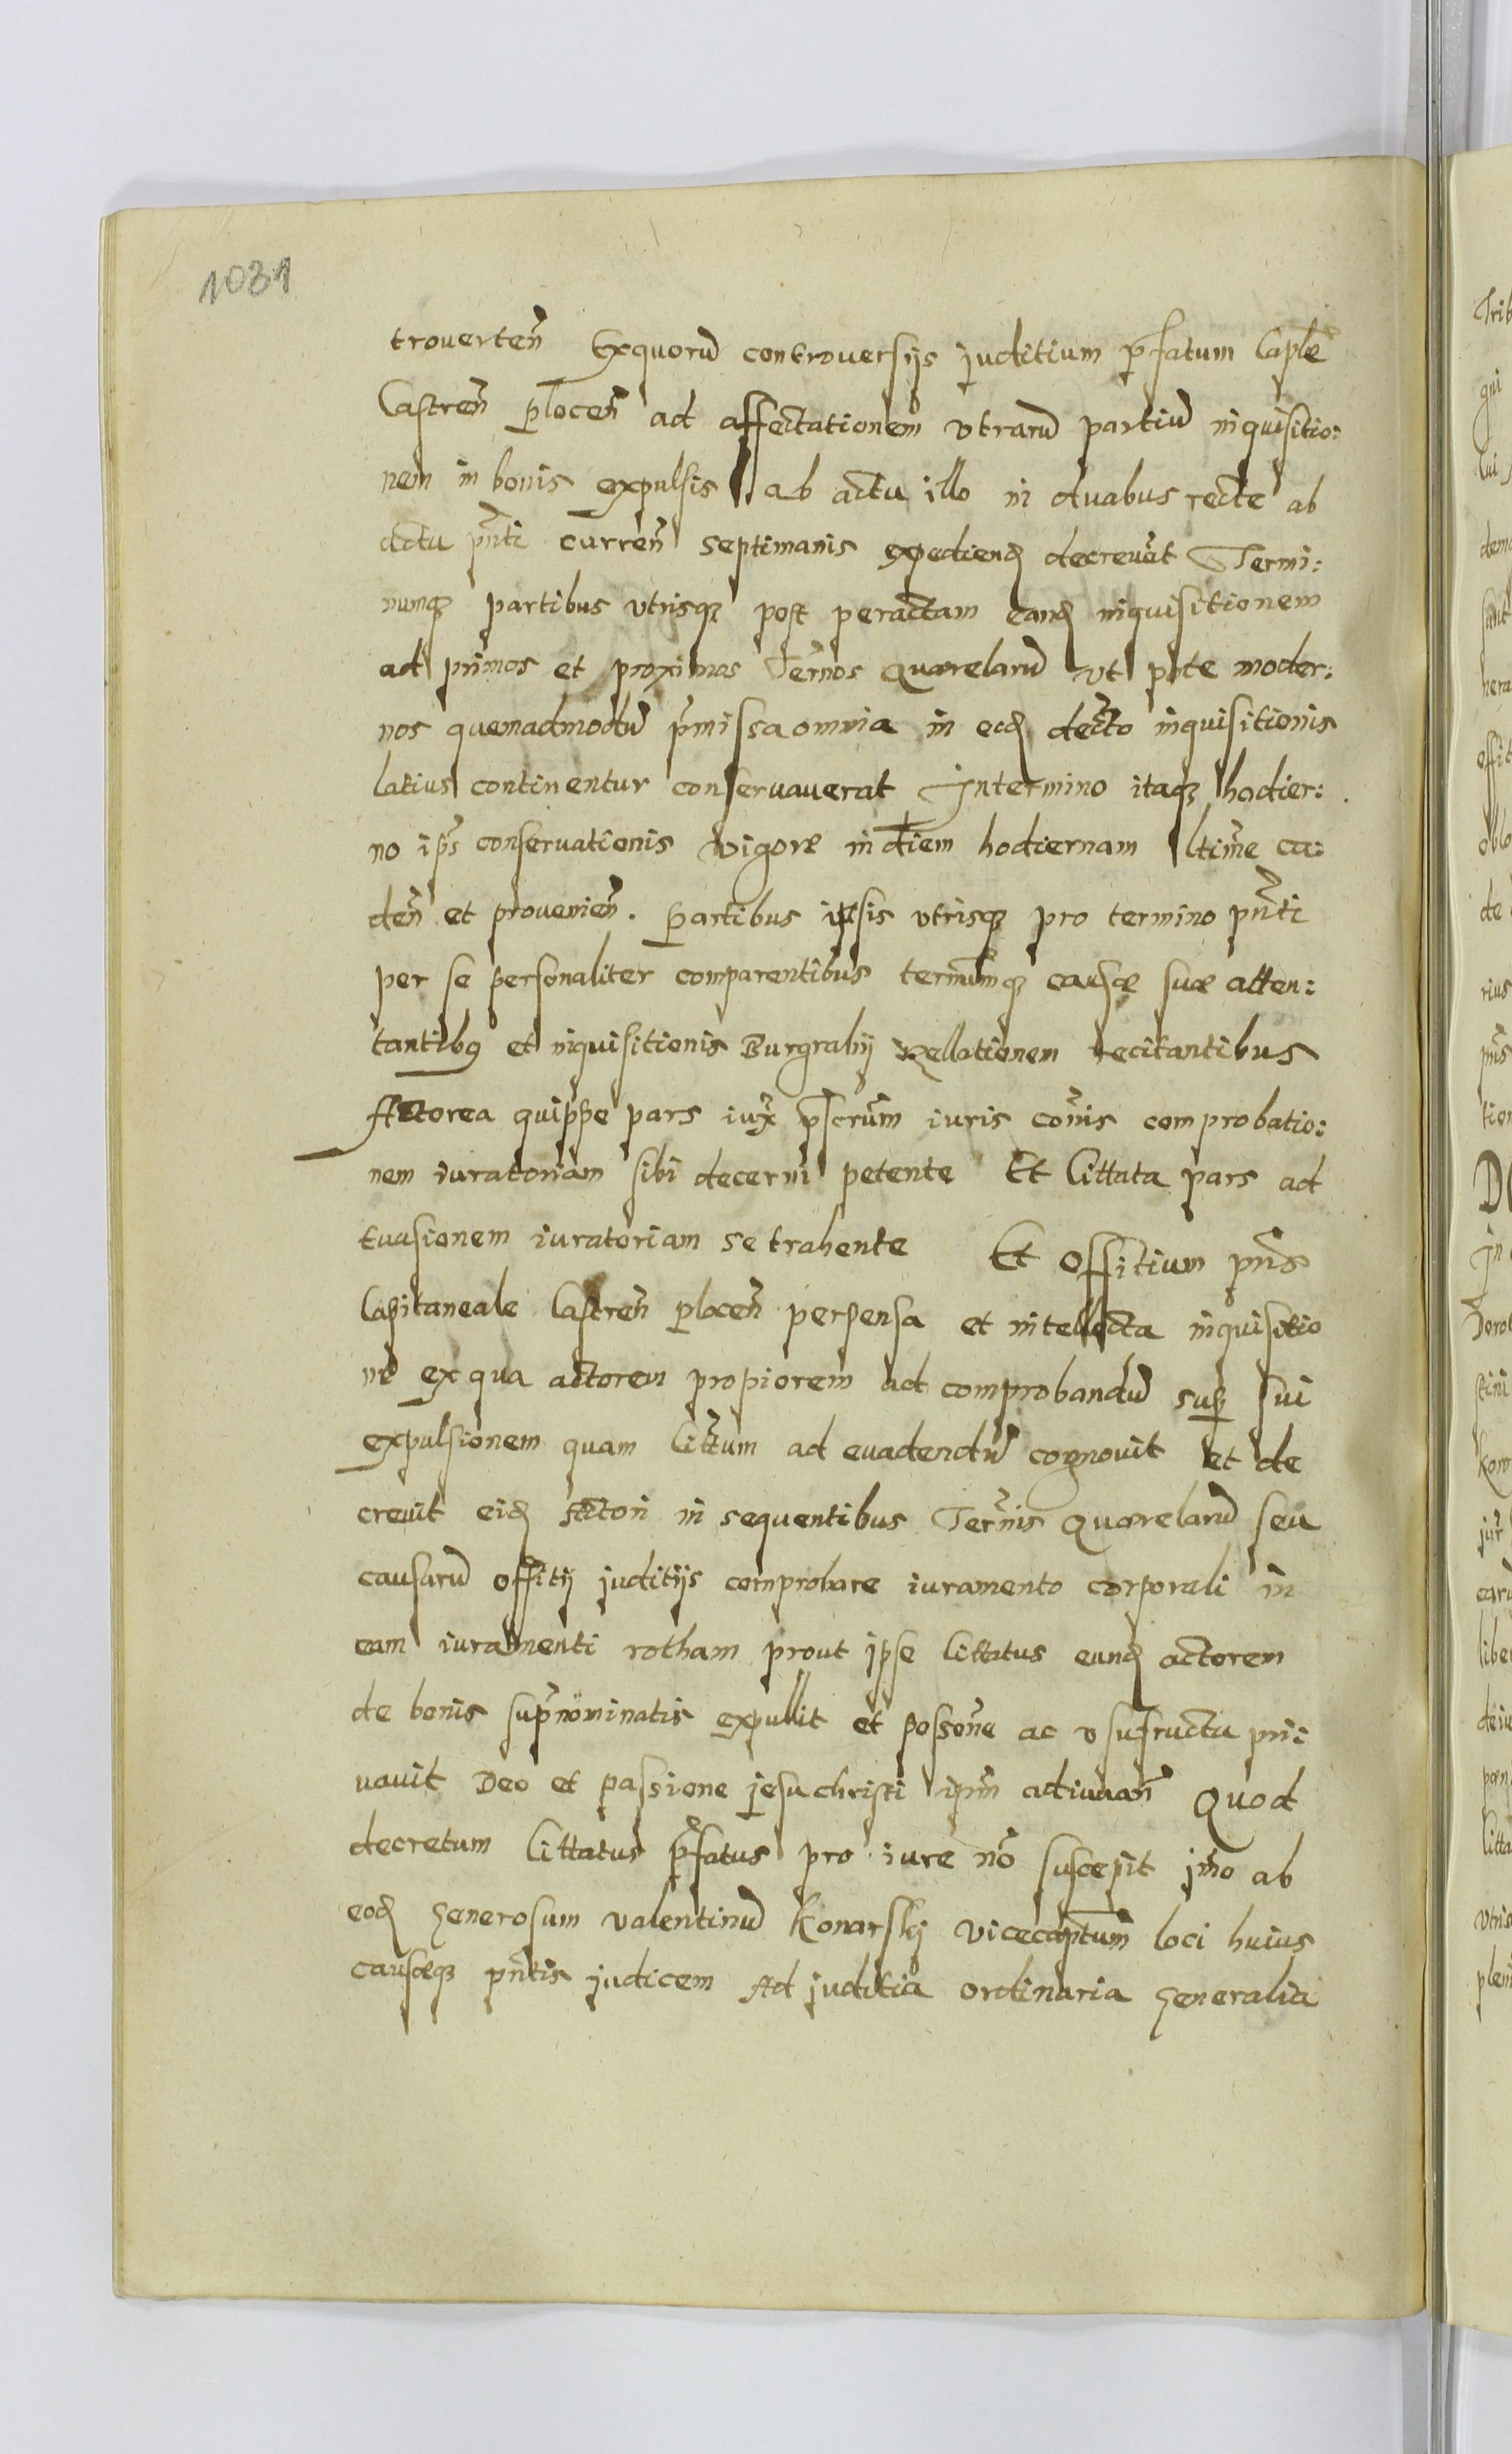 1031
trouerten̄ Ex quorū controuersijs juditium p̄fatum Caplē
Castren̄ plocen̄ ad affectationem vtrarū partiū inquisitio:
nem in bonis expulsis ab actu illo in duabus recte ab
actu pn̄ti curren̄ septimanis expediend decreuit Termi:
numq partibus vtrisq post peractam eand inquisitionem
ad primos et proximos Term̄os Quaerelarū vt pote moder:
nos quemadmodū p̄missa omnia in eod decr̄to inquisitionis
latius continentur conseruauerat Intermino itaq hodier:
no ip̄s conseruationis vigore in diem hodiernam Ltim̄e ca:
den̄ et prouenien̄. Partibus ipsis vtrisq pro termino pn̄ti
per se personaliter comparentibus termīnumq causae suae atten:
tantibq et inquisitionis Burgrabij Rellationem recitantibus
Actorea quippe pars iux̄ p̄scr̄um iuris com̄is comprobatio:
nem iuratoriam sibi decerni petente Et Cittata pars ad
Euasionem iuratoriam se trahente Et Offitium pn̄s
Capitaneale Castren̄ plocen̄ perpensa et intellecta inquisitio
ne ex qua actorem propiorem ad comprobandū sup sui
expulsionem quam Citt̄um ad euadendū cognouit et de
creuit eid Actori in sequentibus Term̄is Quaerelarū seu
causarū offitij juditijs comprobare iuramento corporali in
eam iuramenti rotham prout ipse Cittatus eund actorem
de bonis sup̄nominatis expullit et posson̄e ac vsufructu pri:
uauit Deo et passione jesu christi ipm̄ adiuuan̄ Quod
decretum Cittatus p̄fatus pro iure nō suscepit jm̄o ab
eod Generosum valentinū Konarskj vicecap̄tum loci huius
causaeq pn̄tis judicem Ad juditia ordinaria Generalia